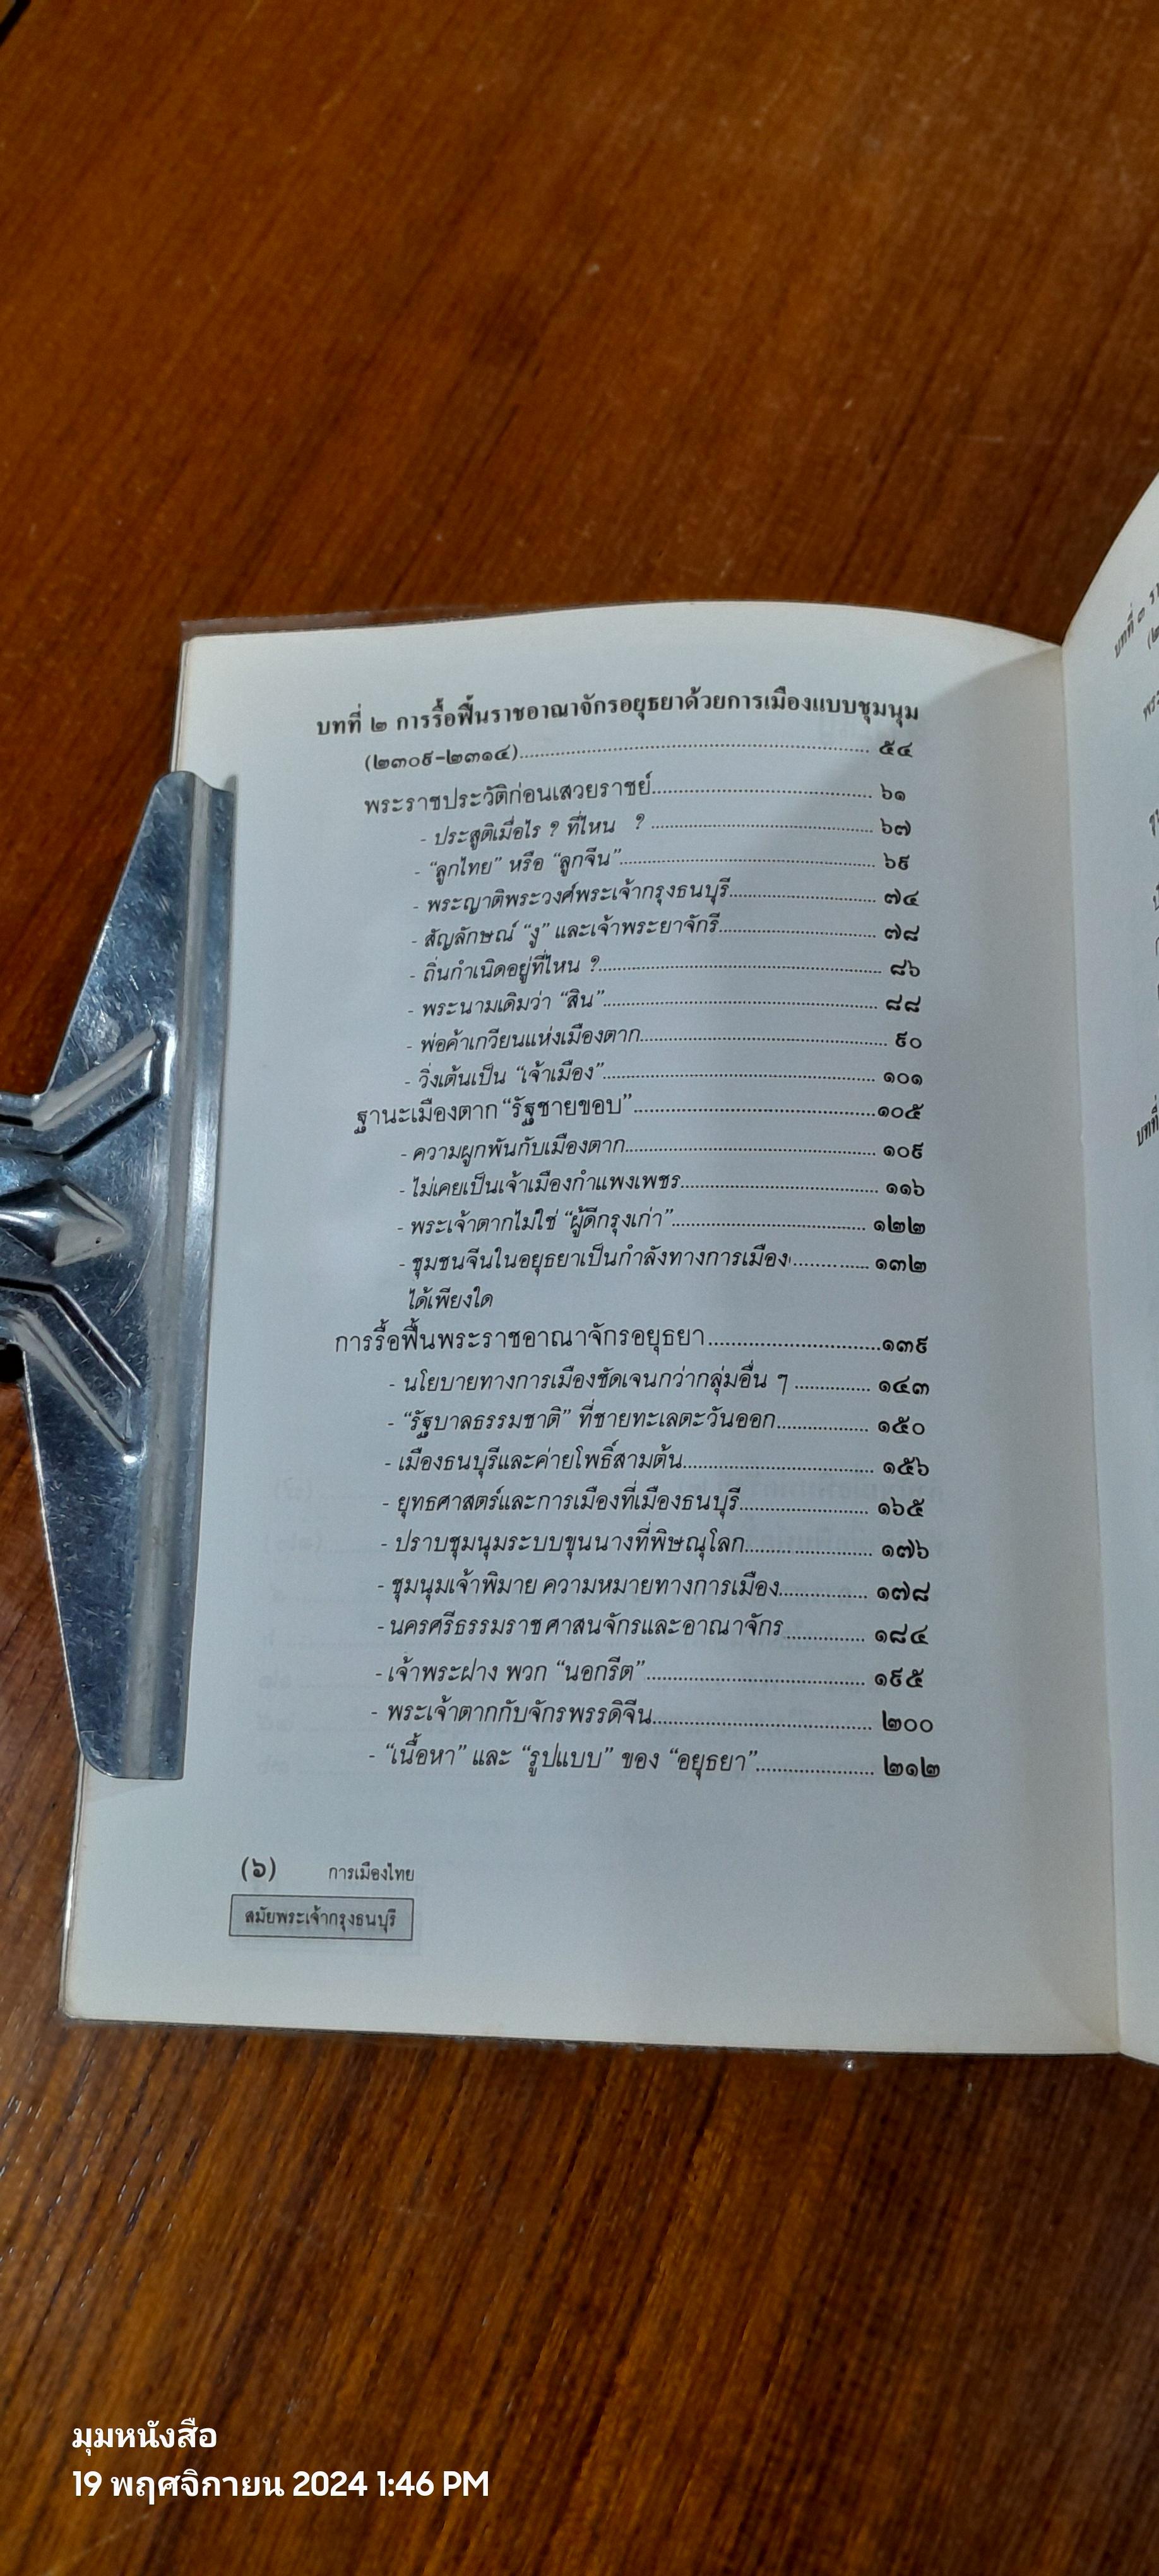 บทที่ ๒ การรื้อฟื้นราชอาณาจักรอยุธยาด้วยการเมืองแบบชุมนุม
(๒๓๐๙-๒๓๑๔)........................................ ๕๔
พระราชประวัติก่อนเสวยราชย์........................................ ๖๑
- ประสูติเมื่อไร ? ที่ไหน ? ........................................ ๖๗
- “ลูกไทย” หรือ “ลูกจีน”........................................ ๖๙
- พระญาติพระวงศ์พระเจ้ากรุงธนบุรี........................................ ๗๔
- สัญลักษณ์ “งู” และเจ้าพระยาจักรี........................................ ๗๘
- ถิ่นกำเนิดอยู่ที่ไหน ?........................................ ๘๖
- พระนามเดิมว่า “สิน”........................................ ๘๘
- พ่อค้าเกวียนแห่งเมืองตาก........................................ ๙๐
- วิ่งเต้นเป็น “เจ้าเมือง”........................................ ๑๐๑
ฐานะเมืองตาก “รัฐชายขอบ”........................................๑๐๕
- ความผูกพันกับเมืองตาก........................................ ๑๐๙
- ไม่เคยเป็นเจ้าเมืองกำแพงเพชร........................................ ๑๑๖
- พระเจ้าตากไม่ใช่ “ผู้ดีกรุงเก่า”........................................ ๑๒๒
- ชุมชนจีนในอยุธยาเป็นกำลังทางการเมือง.............. ๑๓๒
ได้เพียงใด
การรื้อฟื้นพระราชอาณาจักรอยุธยา..............................๑๓๙
- นโยบายทางการเมืองชัดเจนกว่ากลุ่มอื่น ๆ .............. ๑๔๓
- “รัฐบาลธรรมชาติ” ที่ชายทะเลตะวันออก................. ๑๕๐
- เมืองธนบุรีและค่ายโพธิ์สามต้น................................. ๑๕๖
- ยุทธศาสตร์และการเมืองที่เมืองธนบุรี....................... ๑๖๕
- ปราบชุมนุมระบบขุนนางที่พิษณุโลก....................... ๑๗๖
- ชุมนุมเจ้าพิมาย ความหมายทางการเมือง................ ๑๗๘
- นครศรีธรรมราช ศาสนจักรและอาณาจักร .............. ๑๘๔
- เจ้าพระฝาง พวก “นอกรีต”...................................... ๑๙๕
- พระเจ้าตากกับจักรพรรดิจีน...................................... ๒๐๐
- “เนื้อหา” และ “รูปแบบ” ของ “อยุธยา”.................... ๒๑๒
(๖) การเมืองไทย
สมัยพระเจ้ากรุงธนบุรี
มุมหนังสือ
19 พฤศจิกายน 2024 1:46 PM